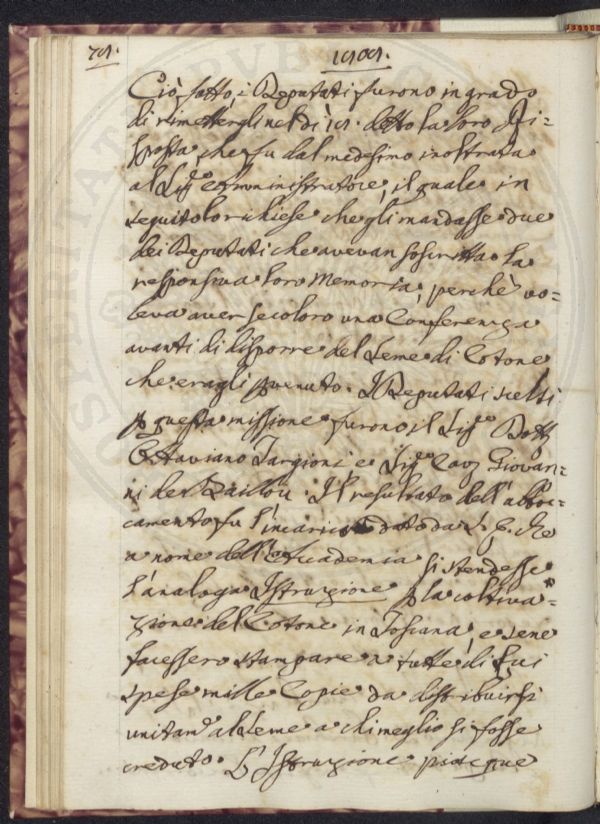 Ciò fatto, i Deputati furono in grado
di rimettergli nel dì detto la loro Ri=
sposta, che fu dal medesimo inoltrata
al Sig.r Amministratore, il quale in
seguito lor chiese che gli mandasse due
dei Deputati che avevan soscritta la
responsiva loro Memoria, perchè vo=
leva aver secoloro una Conferenza
avanti di disporre del Seme di Cotone
che eragli pervenuto. I Deputati scelti
p questa missione furono il Sig.r Dott
Ottaviano Targioni, e Sig.r Cav Giovan=
ni de Baillou. Il resultato dell'abboc=
camento fu l'incarico dato da S. E. che
a nome dell'Accademia si stendesse
l'analoga Istruzione p la coltiva=
zione del Cotone in Toscana, e se ne
facessero stampare a tutte di Lui
spese mille Copie da distribuirsi
unitam.e al Seme a chi meglio si fosse
creduto. L'Istruzione piacque